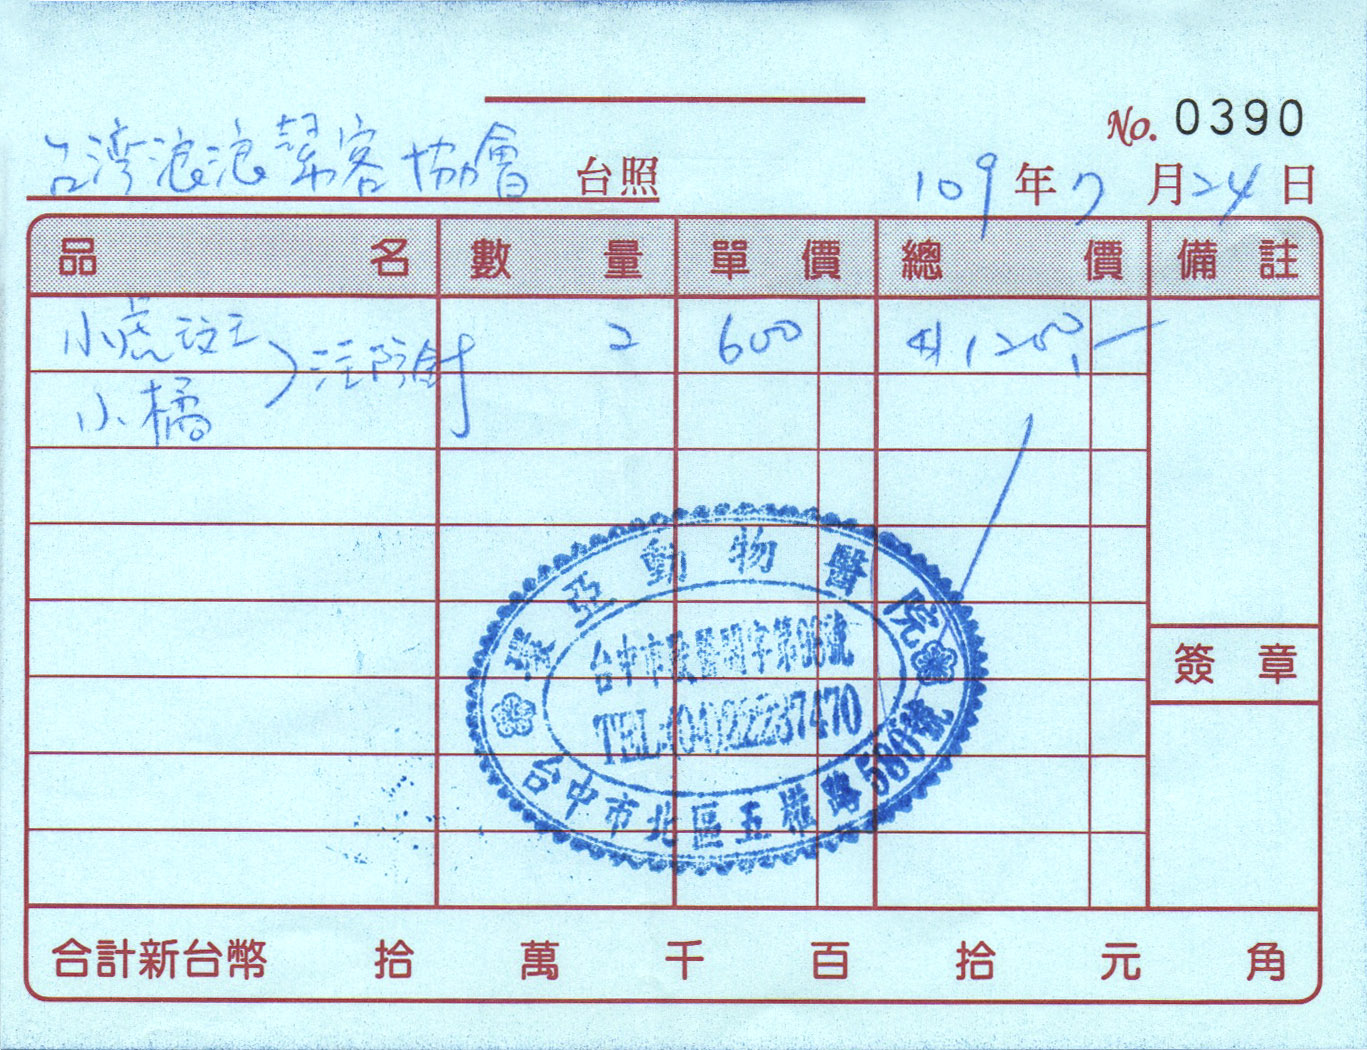 No. 0390
台湾浪浪幫客協會 台照 109年7月24日
品名 數量 單價 總價 備註
小虎 2 600 1200,—
小橘 預防針
動物醫院
TEL:(04)22237470
台中市北區五權路580號
簽章
合計新台幣 拾 萬 千 百 拾 元 角